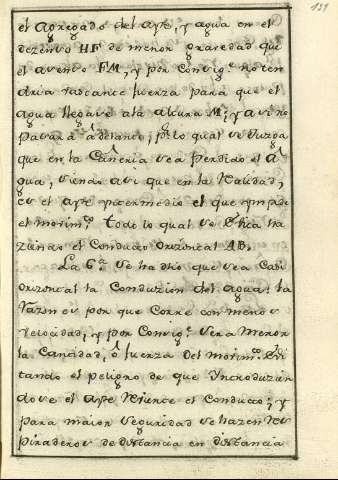 139
el agregado del Ayre, y agua en el
dezenso HF de menor gravedad que
el avenso FM, y por Consig.e no ten
dria vastante fuerza para que el
agua llegase ala altura M, y asi no
pasara adelante, p.r lo qual se Juzga
que en la Cañeria sea perdido el a
gua, siendo asi que en la Realidad,
es el Ayre ytermedio el que ympide
el movim.to todo lo qual se
ziendo el Conducto Orizontal AB.
La 6.a se ha dho que sea Casi
Orizontal la Conduzion del agua: la
Razon es por que Corre con menos
velocidad, y por Consig.e sera menor
la Cantidad, ô fuerza del movim.to Evi
tando el peligro de que Yntroduzien
dose el Ayre Rebiente el Conducto; y
para maior seguridad se hazen Res
piraderos de distancia en distancia